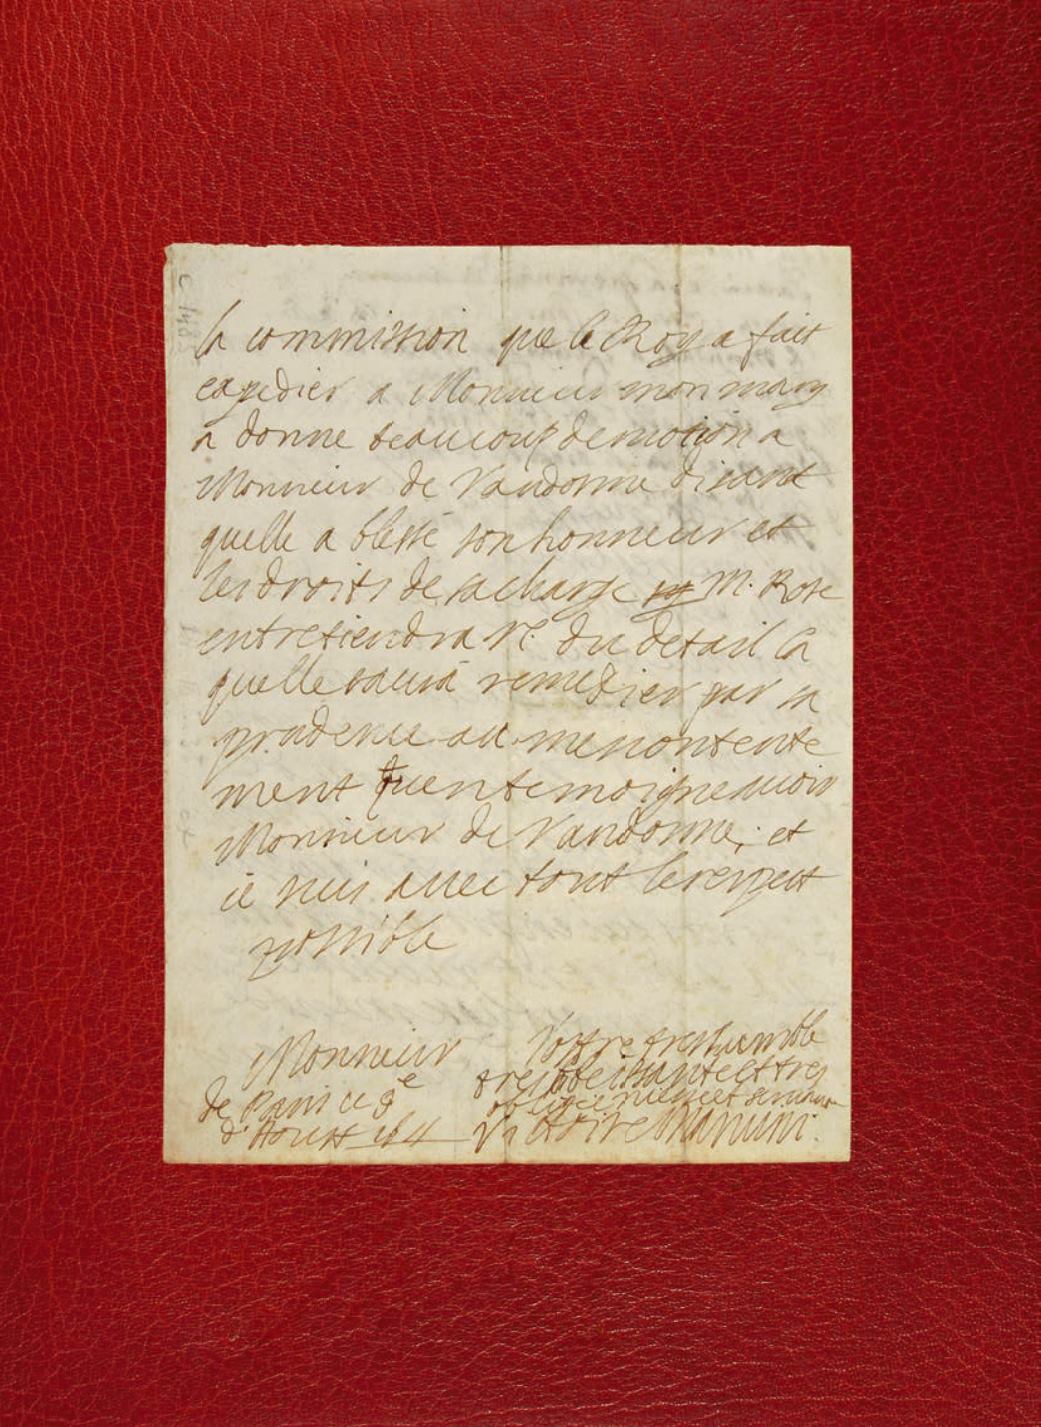 la commission que le Roy a fait
expedier a Monsieur mon mary
a donne beaucoup demotion a
Monsieur de Vandosme disant
quelle a blessé son honneur et
les droits de sa charge M. Rose
entretiendra V. E. du detail la
quelle saura remedier par sa
prudence au mescontente
ment quen temoigne avoir
Monsieur de Vandosme, et
ie suis avec tout le respect
possible
Monsieur Vostre tres humble
tres obeissante et tres
de Paris ce 9e obligee niepce et servante
d'Aoust Victoire Mancini.